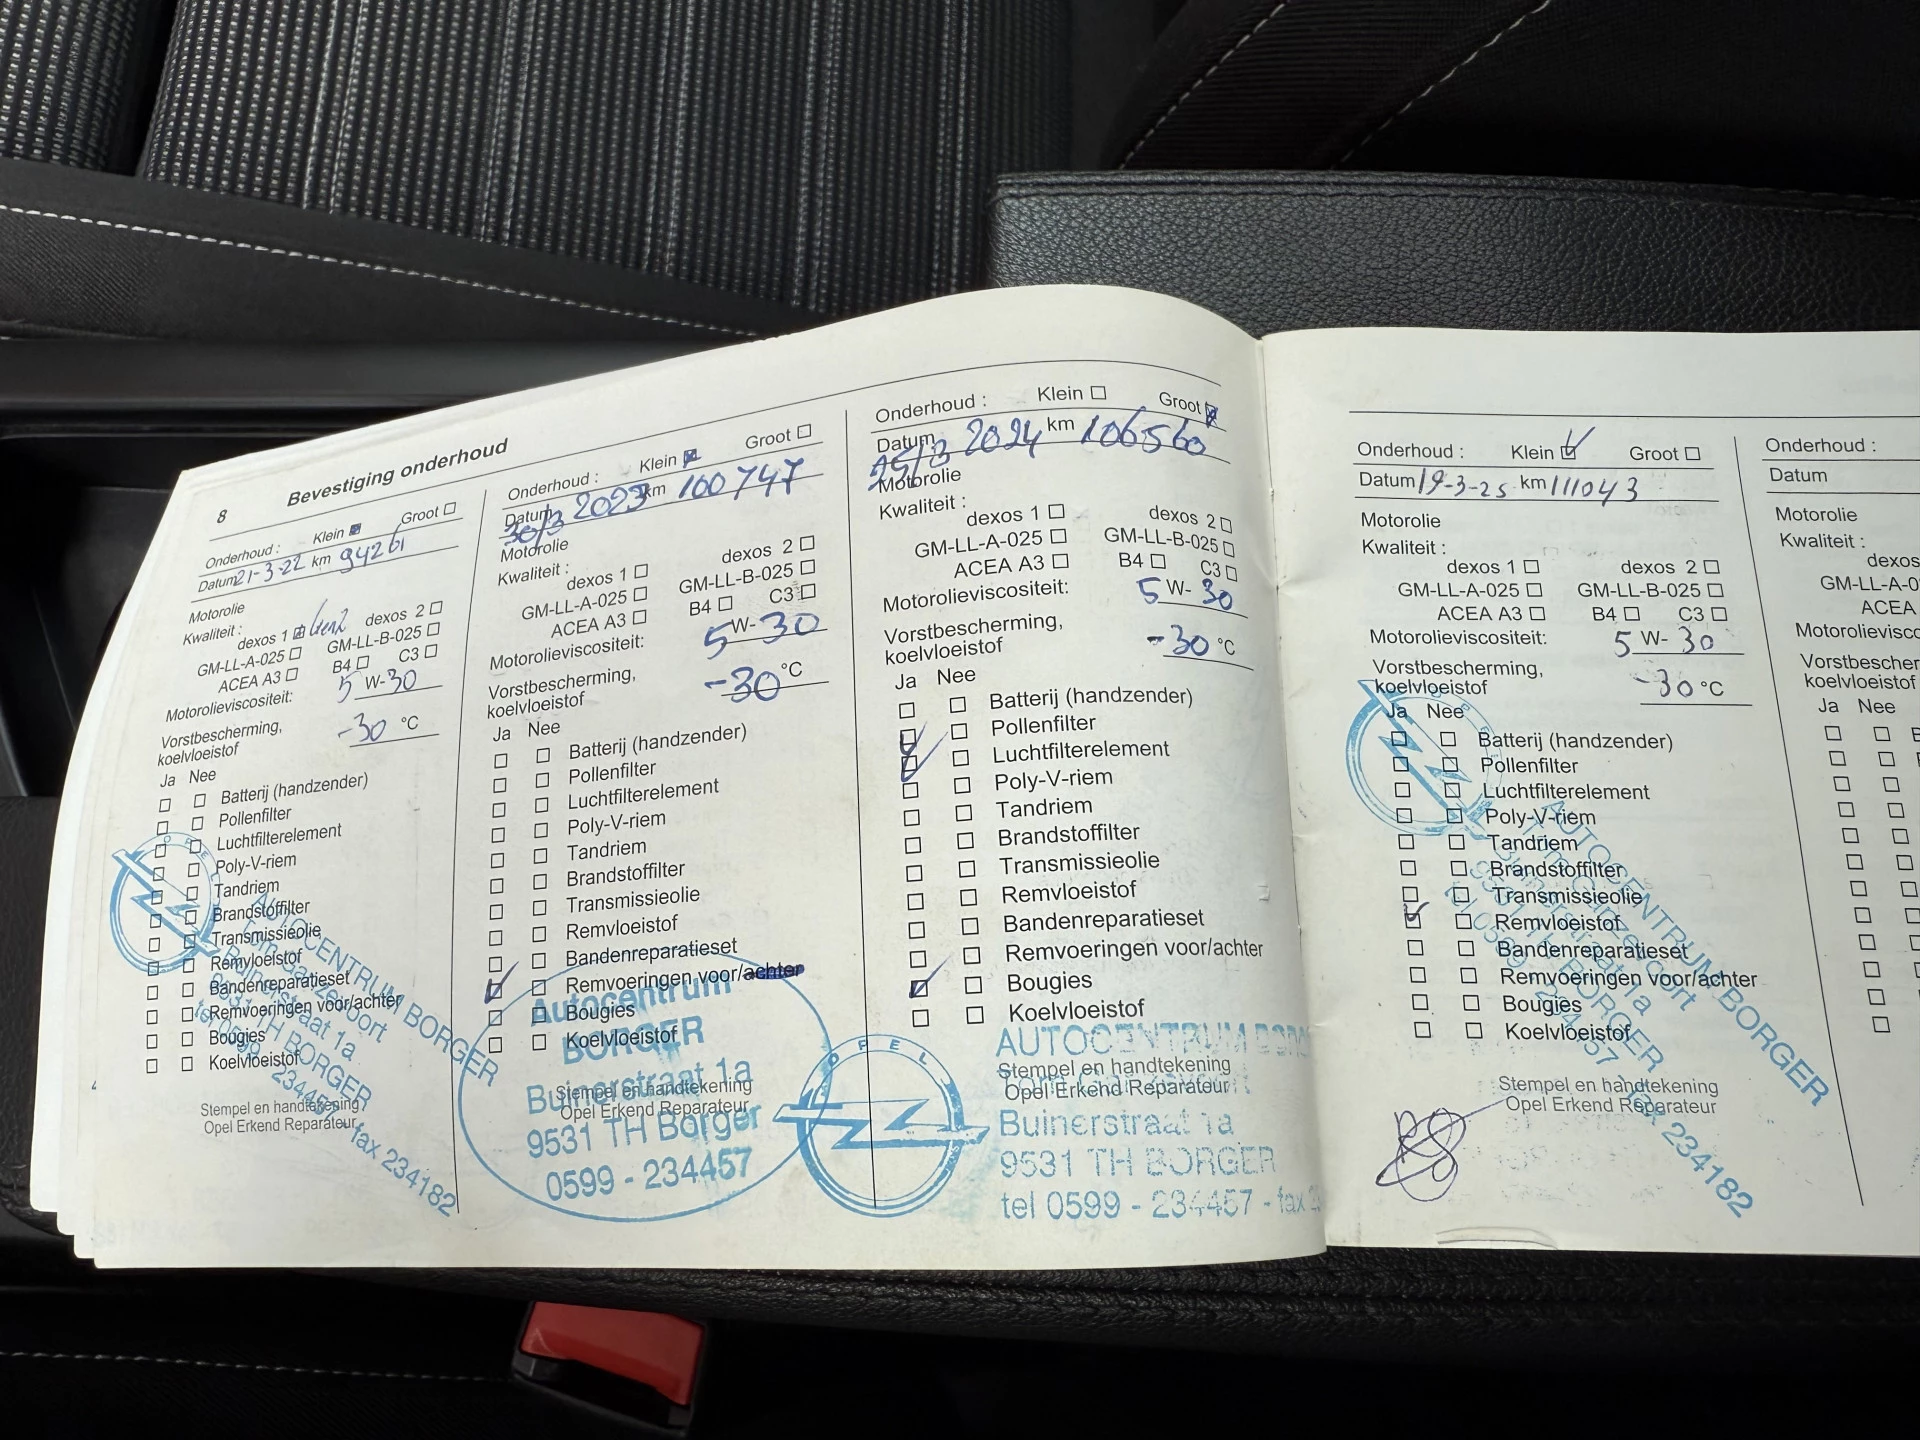 8 Bevestiging onderhoud
Onderhoud : Klein Groot
Datum 21-3-22 km 94261
Motorolie
Kwaliteit :
dexos 1 Gen2 dexos 2
GM-LL-A-025 GM-LL-B-025
ACEA A3 B4 C3
Motorolieviscositeit: 5 W-30
Vorstbescherming,
koelvloeistof -30 °C
Ja Nee
Batterij (handzender)
Pollenfilter
Luchtfilterelement
Poly-V-riem
Tandriem
Brandstoffilter
Transmissieolie
Remvloeistof
Bandenreparatieset
Remvoeringen voor/achter
Bougies
Koelvloeistof
Stempel en handtekening
Opel Erkend Reparateur
OPEL
AUTOCENTRUM BORGER
Buinerstraat 1a
9531 TH BORGER
tel 0599 - 234457 fax 234182
Onderhoud : Klein Groot
Datum 30/3 2023 km 100747
Motorolie
Kwaliteit :
dexos 1 dexos 2
GM-LL-A-025 GM-LL-B-025
ACEA A3 B4 C3
Motorolieviscositeit: 5 W-30
Vorstbescherming,
koelvloeistof -30 °C
Ja Nee
Batterij (handzender)
Pollenfilter
Luchtfilterelement
Poly-V-riem
Tandriem
Brandstoffilter
Transmissieolie
Remvloeistof
Bandenreparatieset
Remvoeringen voor/achter
Bougies
Koelvloeistof
Stempel en handtekening
Opel Erkend Reparateur
Autocentrum
BORGER
Buinerstraat 1a
9531 TH Borger
0599 - 234457
Onderhoud : Klein Groot
Datum 25/3 2024 km 106560
Motorolie
Kwaliteit :
dexos 1 dexos 2
GM-LL-A-025 GM-LL-B-025
ACEA A3 B4 C3
Motorolieviscositeit: 5 W-30
Vorstbescherming,
koelvloeistof -30 °C
Ja Nee
Batterij (handzender)
Pollenfilter
Luchtfilterelement
Poly-V-riem
Tandriem
Brandstoffilter
Transmissieolie
Remvloeistof
Bandenreparatieset
Remvoeringen voor/achter
Bougies
Koelvloeistof
Stempel en handtekening
Opel Erkend Reparateur
OPEL
AUTOCENTRUM
Buinerstraat 1a
9531 TH BORGER
tel 0599 - 234457 - fax
Onderhoud : Klein Groot
Datum 19-3-25 km 111043
Motorolie
Kwaliteit :
dexos 1 dexos 2
GM-LL-A-025 GM-LL-B-025
ACEA A3 B4 C3
Motorolieviscositeit: 5 W-30
Vorstbescherming,
koelvloeistof -30 °C
Ja Nee
Batterij (handzender)
Pollenfilter
Luchtfilterelement
Poly-V-riem
Tandriem
Brandstoffilter
Transmissieolie
Remvloeistof
Bandenreparatieset
Remvoeringen voor/achter
Bougies
Koelvloeistof
Stempel en handtekening
Opel Erkend Reparateur
AUTOCENTRUM BORGER
Buinerstraat 1a
9531 TH BORGER
tel 0599 - 234457 fax 234182
Onderhoud :
Datum
Motorolie
Kwaliteit :
dexos
GM-LL-A-0
ACEA
Motorolievisc
Vorstbescher
koelvloeistof
Ja Nee